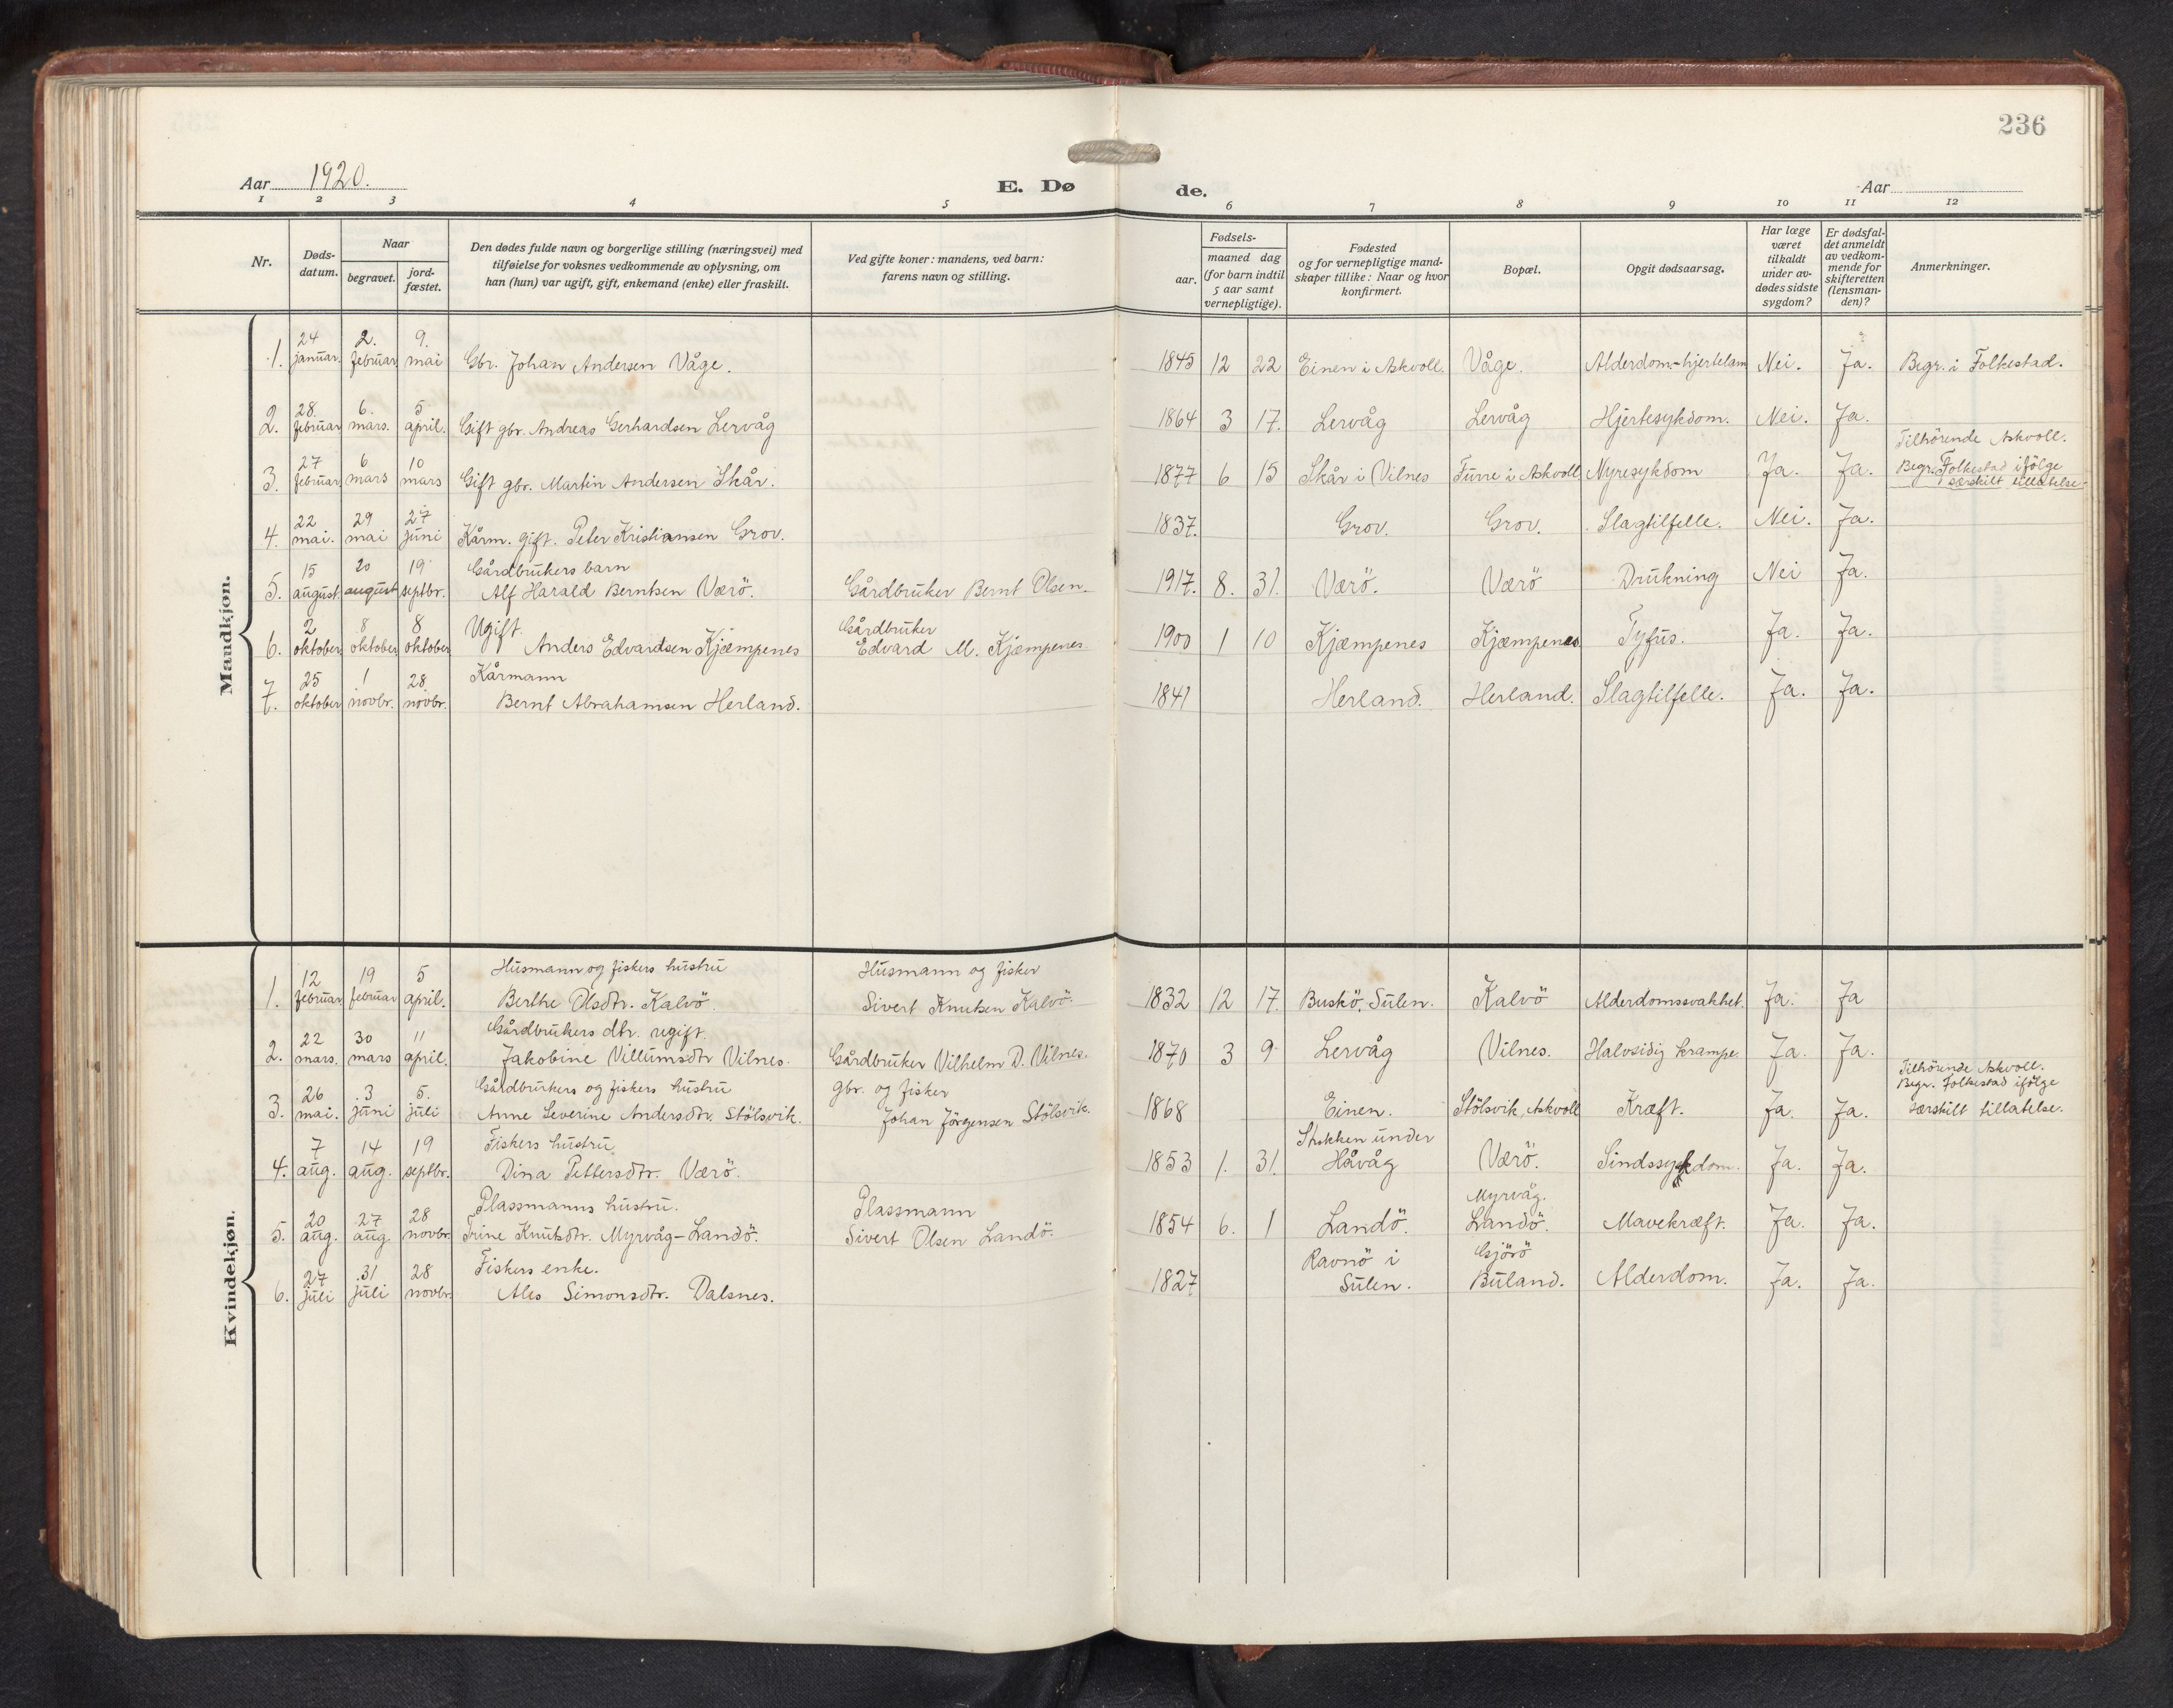 236
Aar 1920.
E. Dø
de.
Aar
1 2 3 4 5 6 7 8 9 10 11 12
Nr.
Døds-
datum.
Naar
begravet.
jord-
fæstet.
Den dødes fulde navn og borgerlige stilling (næringsvei) med
tilføielse for voksnes vedkommende av oplysning, om
han (hun) var ugift, gift, enkemand (enke) eller fraskilt.
Ved gifte koner: mandens, ved barn:
farens navn og stilling.
Fødsels-
aar.
maaned dag
(for barn indtil
5 aar samt
vernepligtige).
Fødested
og for vernepligtige mand-
skaper tillike: Naar og hvor
konfirmert.
Bopæl.
Opgit dødsaarsag.
Har læge
været
tilkaldt
under av-
dødes sidste
sygdom?
Er dødsfal-
det anmeldt
av vedkom-
mende for
skifteretten
(lensman-
den)?
Anmerkninger.
Mandkjøn.
24 2. 9.
1. januar. februar mai Gbr. Johan Andersen Våge. 1845 12 22 Einen i Askvoll. Våge. Alderdom-hjertelam Nei. Ja. Begr. i Folkestad.
28. 6. 5
2. februar mars. april. Gift gbr. Andreas Gerhardsen Lervåg 1864 3 17. Lervåg Lervåg Hjertesykdom. Nei. Ja.
27 6 10 Tilhörende Askvoll.
3. februar. mars mars Gift gbr. Martin Andersen Skår. 1877 6 15 Skår i Vilnes Furre i Askvoll Nyresykdom Ja. Ja. Begr. Folkestad ifölge
særskilt tillatelse.
22 29 27
4. mai. mai juni Kårm. gift. Peter Kristiansen Grov. 1837. Grov. Grov. Slagtilfelle. Nei. Ja.
15 20 19 Gårdbrukers barn
5. august. august septbr. Alf Harald Berntsen Værö. Gårdbruker Bernt Olsen. 1917. 8. 31. Værö. Værö Drukning Nei Ja.
2 8 8 Ugift. Gårdbruker
6. oktober oktober oktober Anders Edvardsen Kjæmpenes Edvard M. Kjæmpenes 1900 1 10 Kjæmpenes Kjæmpenes Tyfus. Ja. Ja.
25 1 28 Kårmann
7. oktober novbr. novbr. Bernt Abrahamsen Herland. 1841 Herland. Herland. Slagtilfelle. Ja. Ja.
Kvindekjøn.
12 19 5 Husmann og fiskers hustru Husmann og fisker
1. februar februar april. Berthe Olsdtr. Kalvö. Sivert Knutsen Kalvö. 1832 12 17. Buskö, Sulen. Kalvö Alderdomssvakhet. Ja. Ja
22 30 11 Gårdbrukers dtr. ugift.
2. mars. mars april. Jakobine Villumsdtr Vilnes. Gårdbruker Vilhelm D. Vilnes. 1870 3 9 Lervåg Vilnes. Halvsidig krampe. Ja. Ja.
26 3 5. Gårdbrukers og fiskers hustru gbr. og fisker Tilhörende Askvoll.
Begr. Folkestad ifölge
3. mai. juni juli Anne Severine Andersdtr. Stölsvik. Johan Jörgensen Stölsvik. 1868 Einen. Stölsvik, Askvoll Kræft. Ja. Ja. særskilt tillatelse.
7 14 19 Fiskers hustru Stokken under
4. aug. aug. septbr. Dina Pettersdtr. Værö. 1853 1. 31. Håvåg Værö. Sindssykdom. Ja. Ja.
20 27 28 Plassmanns hustru. Plassmann Myrvåg.
5. aug. aug novbr. Trine Knutsdtr. Myrvåg-Landö. Sivert Olsen Landö. 1854 6. 1 Landö. Landö. Mavekræft. Ja. Ja.
27 31 28 Fiskers enke. Ravnö i Gjörö
6. juli juli novbr. Ales Simonsdtr. Dalsnes. 1827 Sulen. Buland. Alderdom. Ja. Ja.